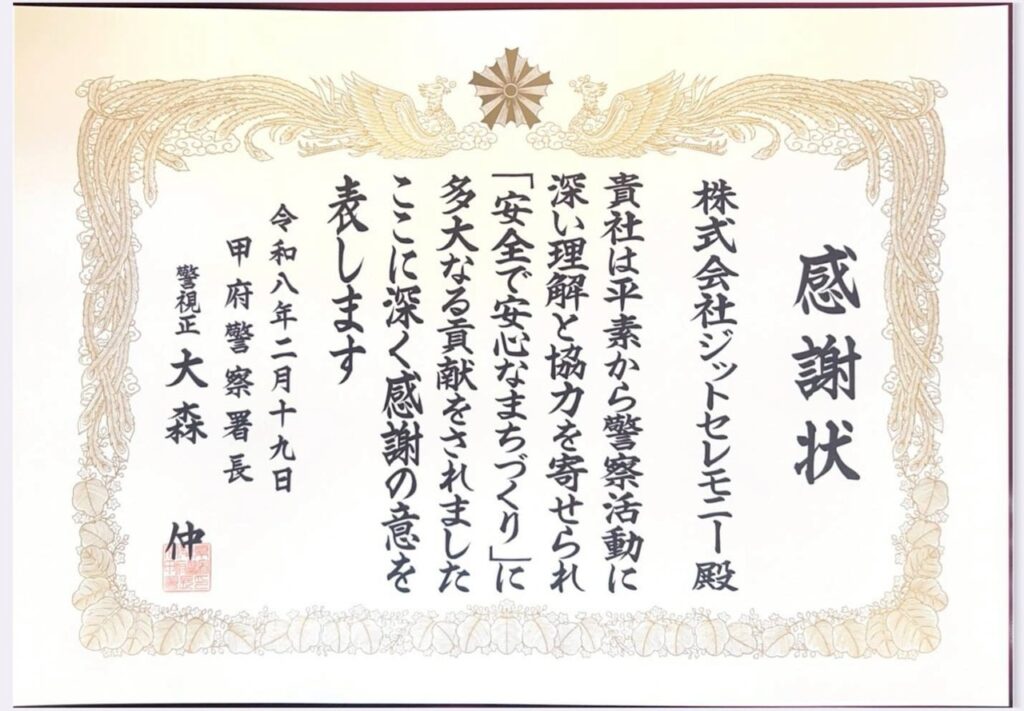 感謝状
株式会社ジットセレモニー殿
貴社は平素から警察活動に
深い理解と協力を寄せられ
「安全で安心なまちづくり」に
多大なる貢献をされました
ここに深く感謝の意を
表します
令和八年二月十九日
甲府警察署長
警視正 大森 仲